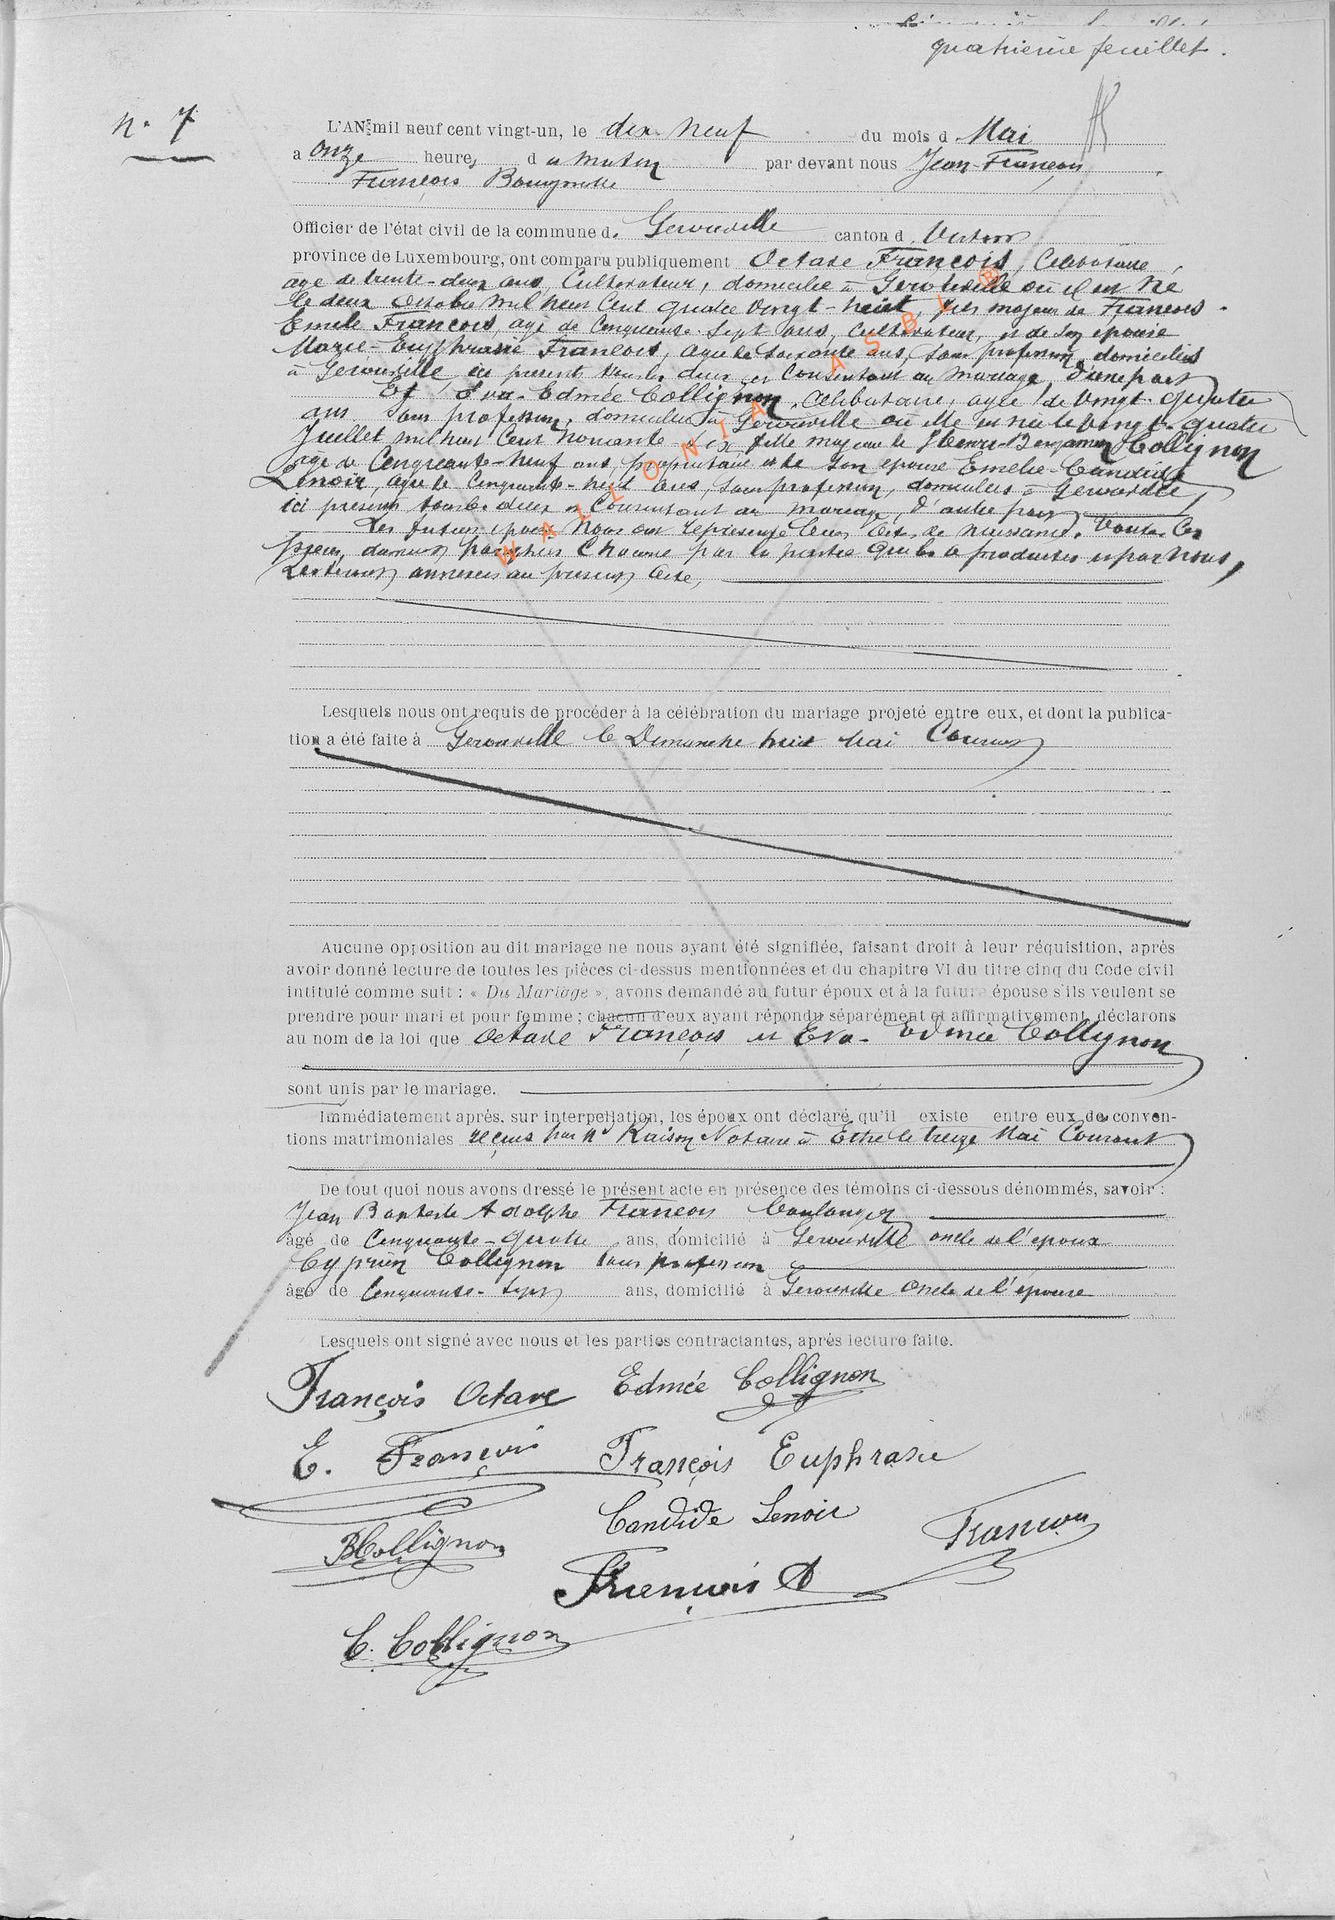 quatrième feuillet.
n. 7
L'AN mil neuf cent vingt-un, le dix-neuf du mois d Mai
a onze heures du matin par devant nous Jean-François
François
Officier de l'état civil de la commune de Gérouville canton d Virton
province de Luxembourg, ont comparu publiquement Octave François, Célibataire,
âgé de trente-deux ans, Cultivateur, domicilié à Gérouville où il est né
le deux Octobre mil huit cent quatre vingt-huit, fils majeur de François
Emile François, âgé de Cinquante-Sept ans, Cultivateur, et de son épouse
Marie-Euphrasie François, âgée de soixante ans, sans profession, domiciliés
à Gérouville, ici présents tous les deux et Consentant au mariage, d'une part
Et Eva-Edmée Collignon, Célibataire, âgée de vingt-quatre
ans sans profession, domiciliée à Gérouville où elle est née le vingt-quatre
Juillet mil huit Cent Nonante-six fille majeure de Henri-Benjamin Collignon
âgé de Cinquante-Neuf ans, propriétaire et de son épouse Emélie-Candide
Lenoir, âgée de Cinquante-huit ans, sans profession, domiciliés à Gérouville,
ici présents tous les deux et Consentant au mariage, d'autre part
Les futurs époux Nous ont représenté leurs Actes de naissance. Toutes Ces
pièces, dûment paraphées Chacune par la partie qui les a produites et par Nous,
resteront annexées au présent Acte,
Lesquels nous ont requis de procéder à la célébration du mariage projeté entre eux, et dont la publica-
tion a été faite à Gérouville le Dimanche huit Mai Courant
Aucune opposition au dit mariage ne nous ayant été signifiée, faisant droit à leur réquisition, après
avoir donné lecture de toutes les pièces ci-dessus mentionnées et du chapitre VI du titre cinq du Code civil
intitulé comme suit : « Du Mariage », avons demandé au futur époux et à la future épouse s'ils veulent se
prendre pour mari et pour femme ; chacun d'eux ayant répondu séparément et affirmativement, déclarons
au nom de la loi que Octave François et Eva-Edmée Collignon
sont unis par le mariage.
Immédiatement après, sur interpellation, les époux ont déclaré qu'il existe entre eux des conven-
tions matrimoniales reçues par Mr Raison Notaire à Ethe le treize Mai Courant
De tout quoi nous avons dressé le présent acte en présence des témoins ci-dessous dénommés, savoir :
Jean Baptiste Adolphe François boulanger
âgé de Cinquante-quatre ans, domicilié à Gérouville oncle de l'époux
Cyprien Collignon sans profession
âgé de Cinquante-Sept ans, domicilié à Gérouville Oncle de l'épouse
Lesquels ont signé avec nous et les parties contractantes, après lecture faite.
François Octave Edmée Collignon
E. François François Euphrasie
Candide Lenoir
BCollignon François
François A
C. Collignon
WALLONIA ASBL ®